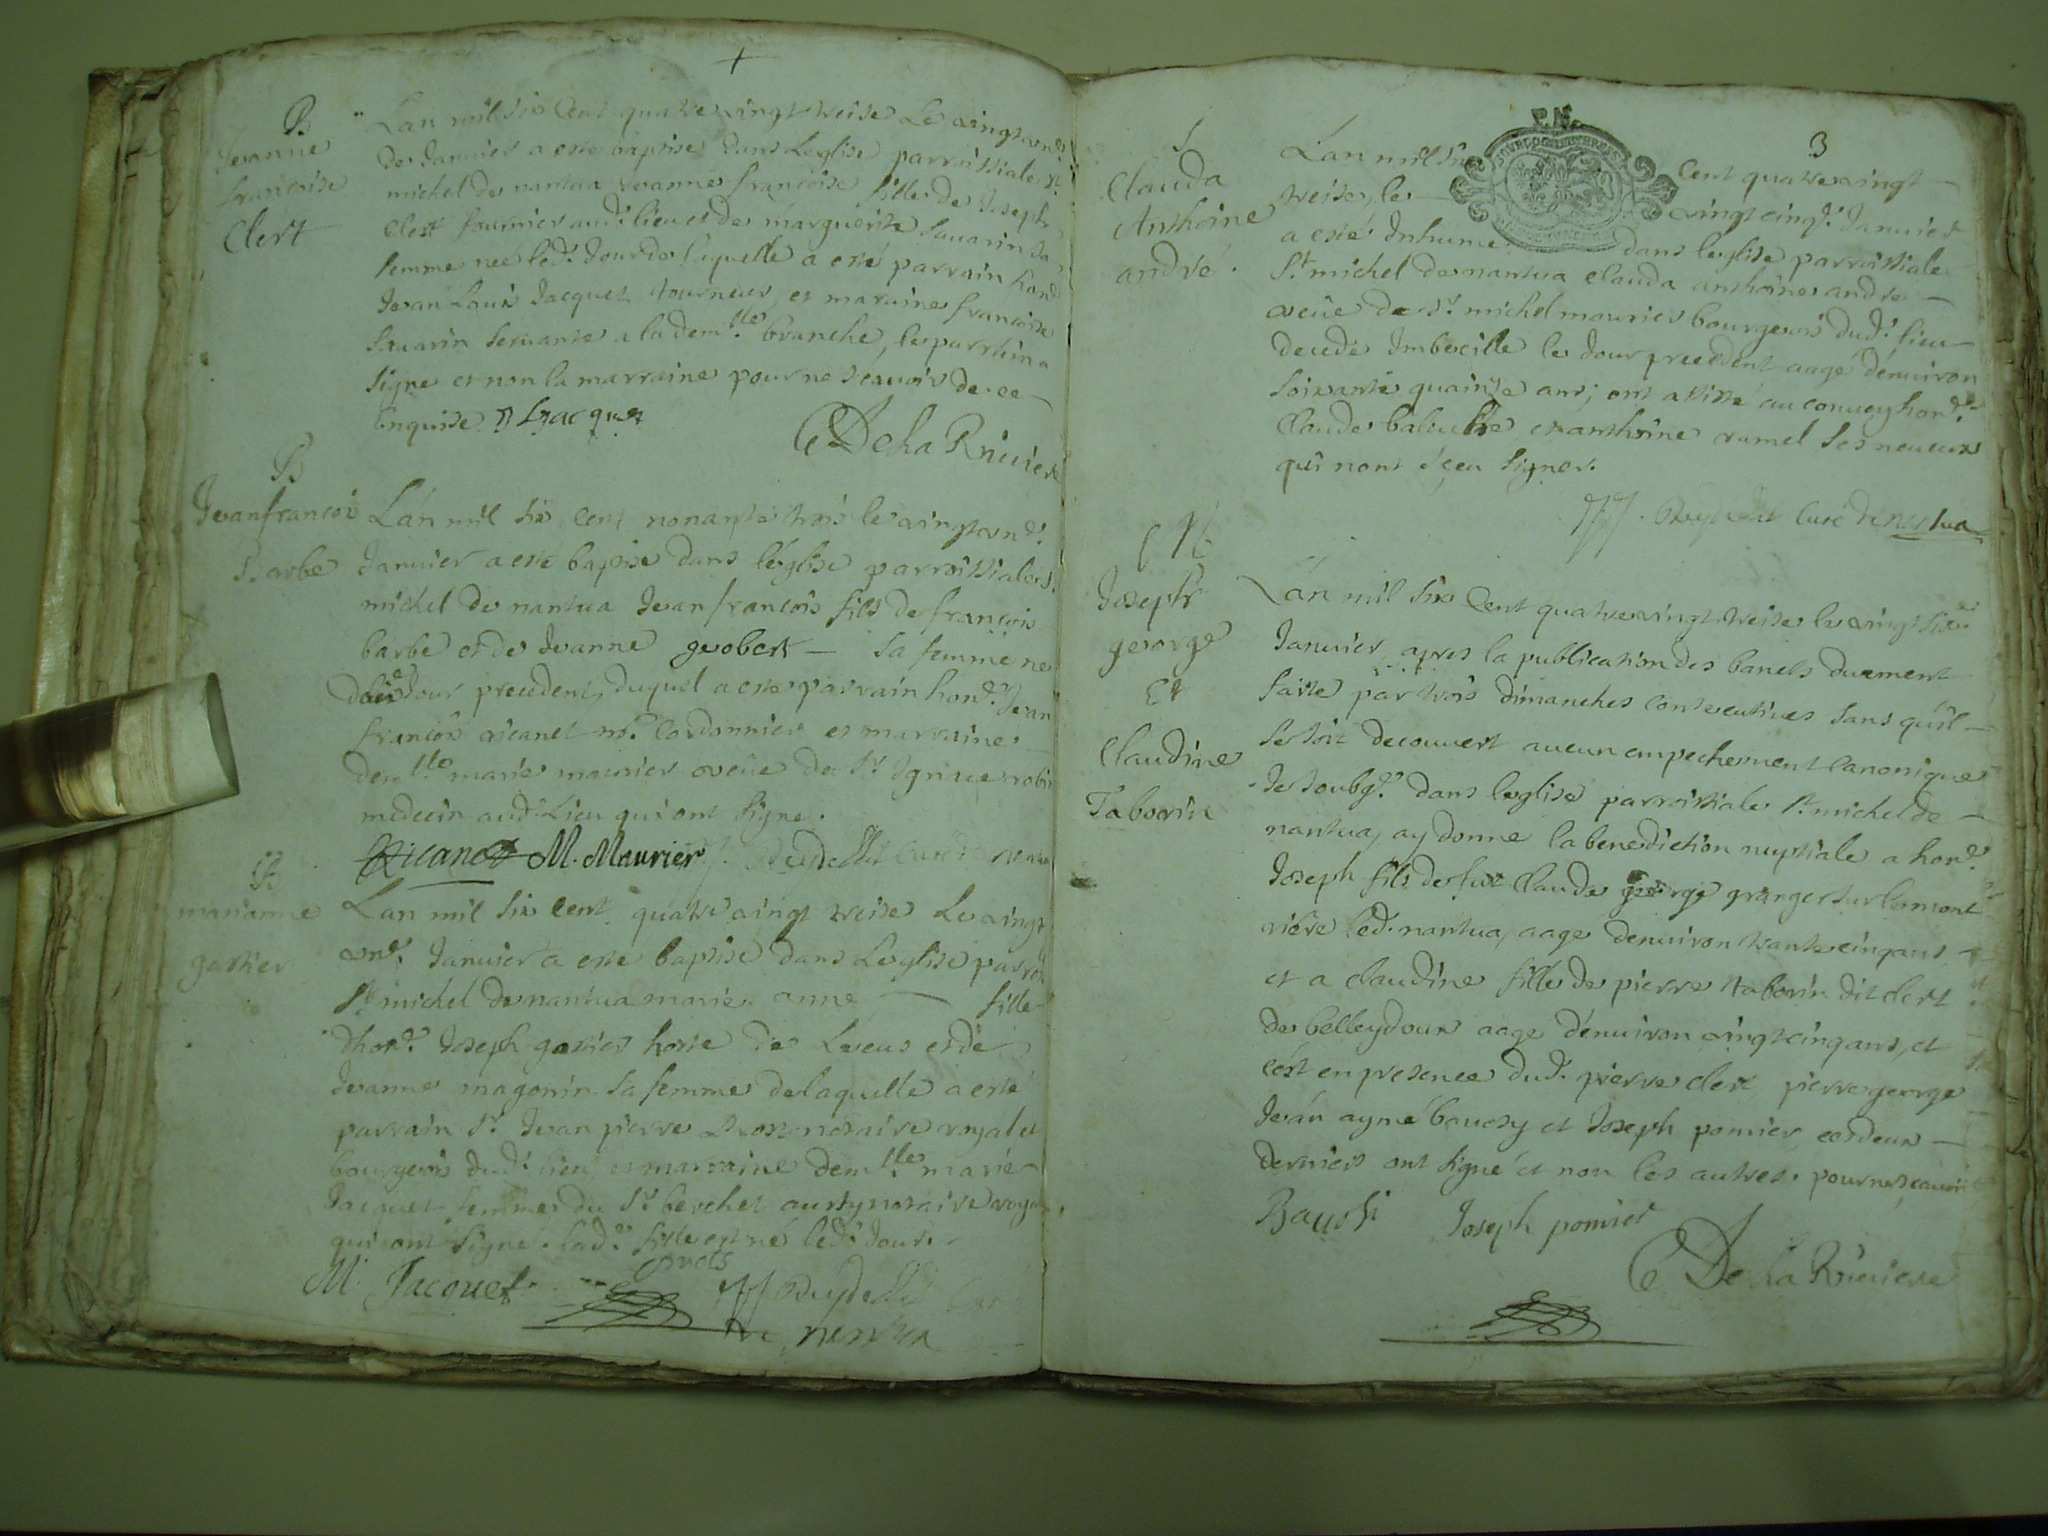 B
Jeanne
francoise
Clert
Lan mil six Cent quatre vingt treise Le vingt un.e
de Janvier a esté baptise dans Leglise parroissiale St
michel de nantua Jeanne francoise fille de Joseph
Clert fournier aud.t lieu et de marguerite Sauarin sa
femme nee led.t Jour de laquelle a esté parrain hon.
Jean Louis Jacquet tourneur, et maraine francoise
Sauarin Seruante a la dem.lle branche, le parrain a
signe et non la marraine pour ne scauoir de ce
Enquise JLJacquet
De La Riuiere
B
Jeanfrancois
Barbe
Lan mil six cent nonante trois le vingt un.e
Januier a esté baptise dans léglise parroissiale S.t
michel de nantua Jean francois fils de francois
barbe et de Jeanne geobert — sa femme ne
le Jour precedent, duquel a este parrain hon.e Jean
francois vicanet m.e Cordonnier et marraine
dem.lle marie maurier veüe du S.r Ignace robin
medecin aud.t Lieu qui ont signe.
Vicanet M. Maurier
B
marianne
gattier
Lan mil six cent quatre vingt treise Le vingt
un.e Januier a este baptise dans Leglise parroi
St michel de nantua marie anne — fille
d'hon.e Joseph gattier hoste de Ludit et de
Jeanne magonin sa femme de laquelle a esté
parrain S.r Jean pierre notaire royal et
bourgeois dud.t lieu et marraine dem.lle marie
Jacquet femme du S.r berchet aussy notaire royal
qui ont signé. lad.te fille est né led.t Jour.
M. Jacquet
de nantua
3
S
Clauda
Anthoine
andré.
Lan mil six Cent quatre vingt
treise, le vingt cinq.e Januier
a esté Inhume dans leglise parroissiale
St michel de nantua clauda anthoine andre —
veüe de S.r michel maurier bourgeois dud.t lieu
decedé Imbecille le Jour precedent aagé dénuiron
soixante quainze ans; ont assisté au conuoy hon.e
Claude et anthoine ramel ses neueux
qui nont sçeu signer.
Curé de nantua
M
Joseph
george
Et
Claudine
Taborin
Lán mil six Cent quatre vingt treise le vingt six.e
Januier, apres la publication des bancs duement
faite par trois dimanches consecutiues sans qu'il —
se soit decouvert aucun empechement Canonique
Je soubg.e dans leglise parroissiale St michel de —
nantua, ay donne la benediction nuptiale a hon.e
Joseph fils de fut Claude george granger sur le mont
riére led.t nantua, aage denuiron trante cinq ans —
et a claudine fille de pierre taborin dit clert
de belleydoux aage dénuiron vingt cinq ans, et
cést en presence dud.t pierre clert pierre george
Jean aymé bauсsy et Joseph pomier, ces deux —
derniers ont signé et non les autres pour ne scauoir
Joseph pomier
De La Riuiere